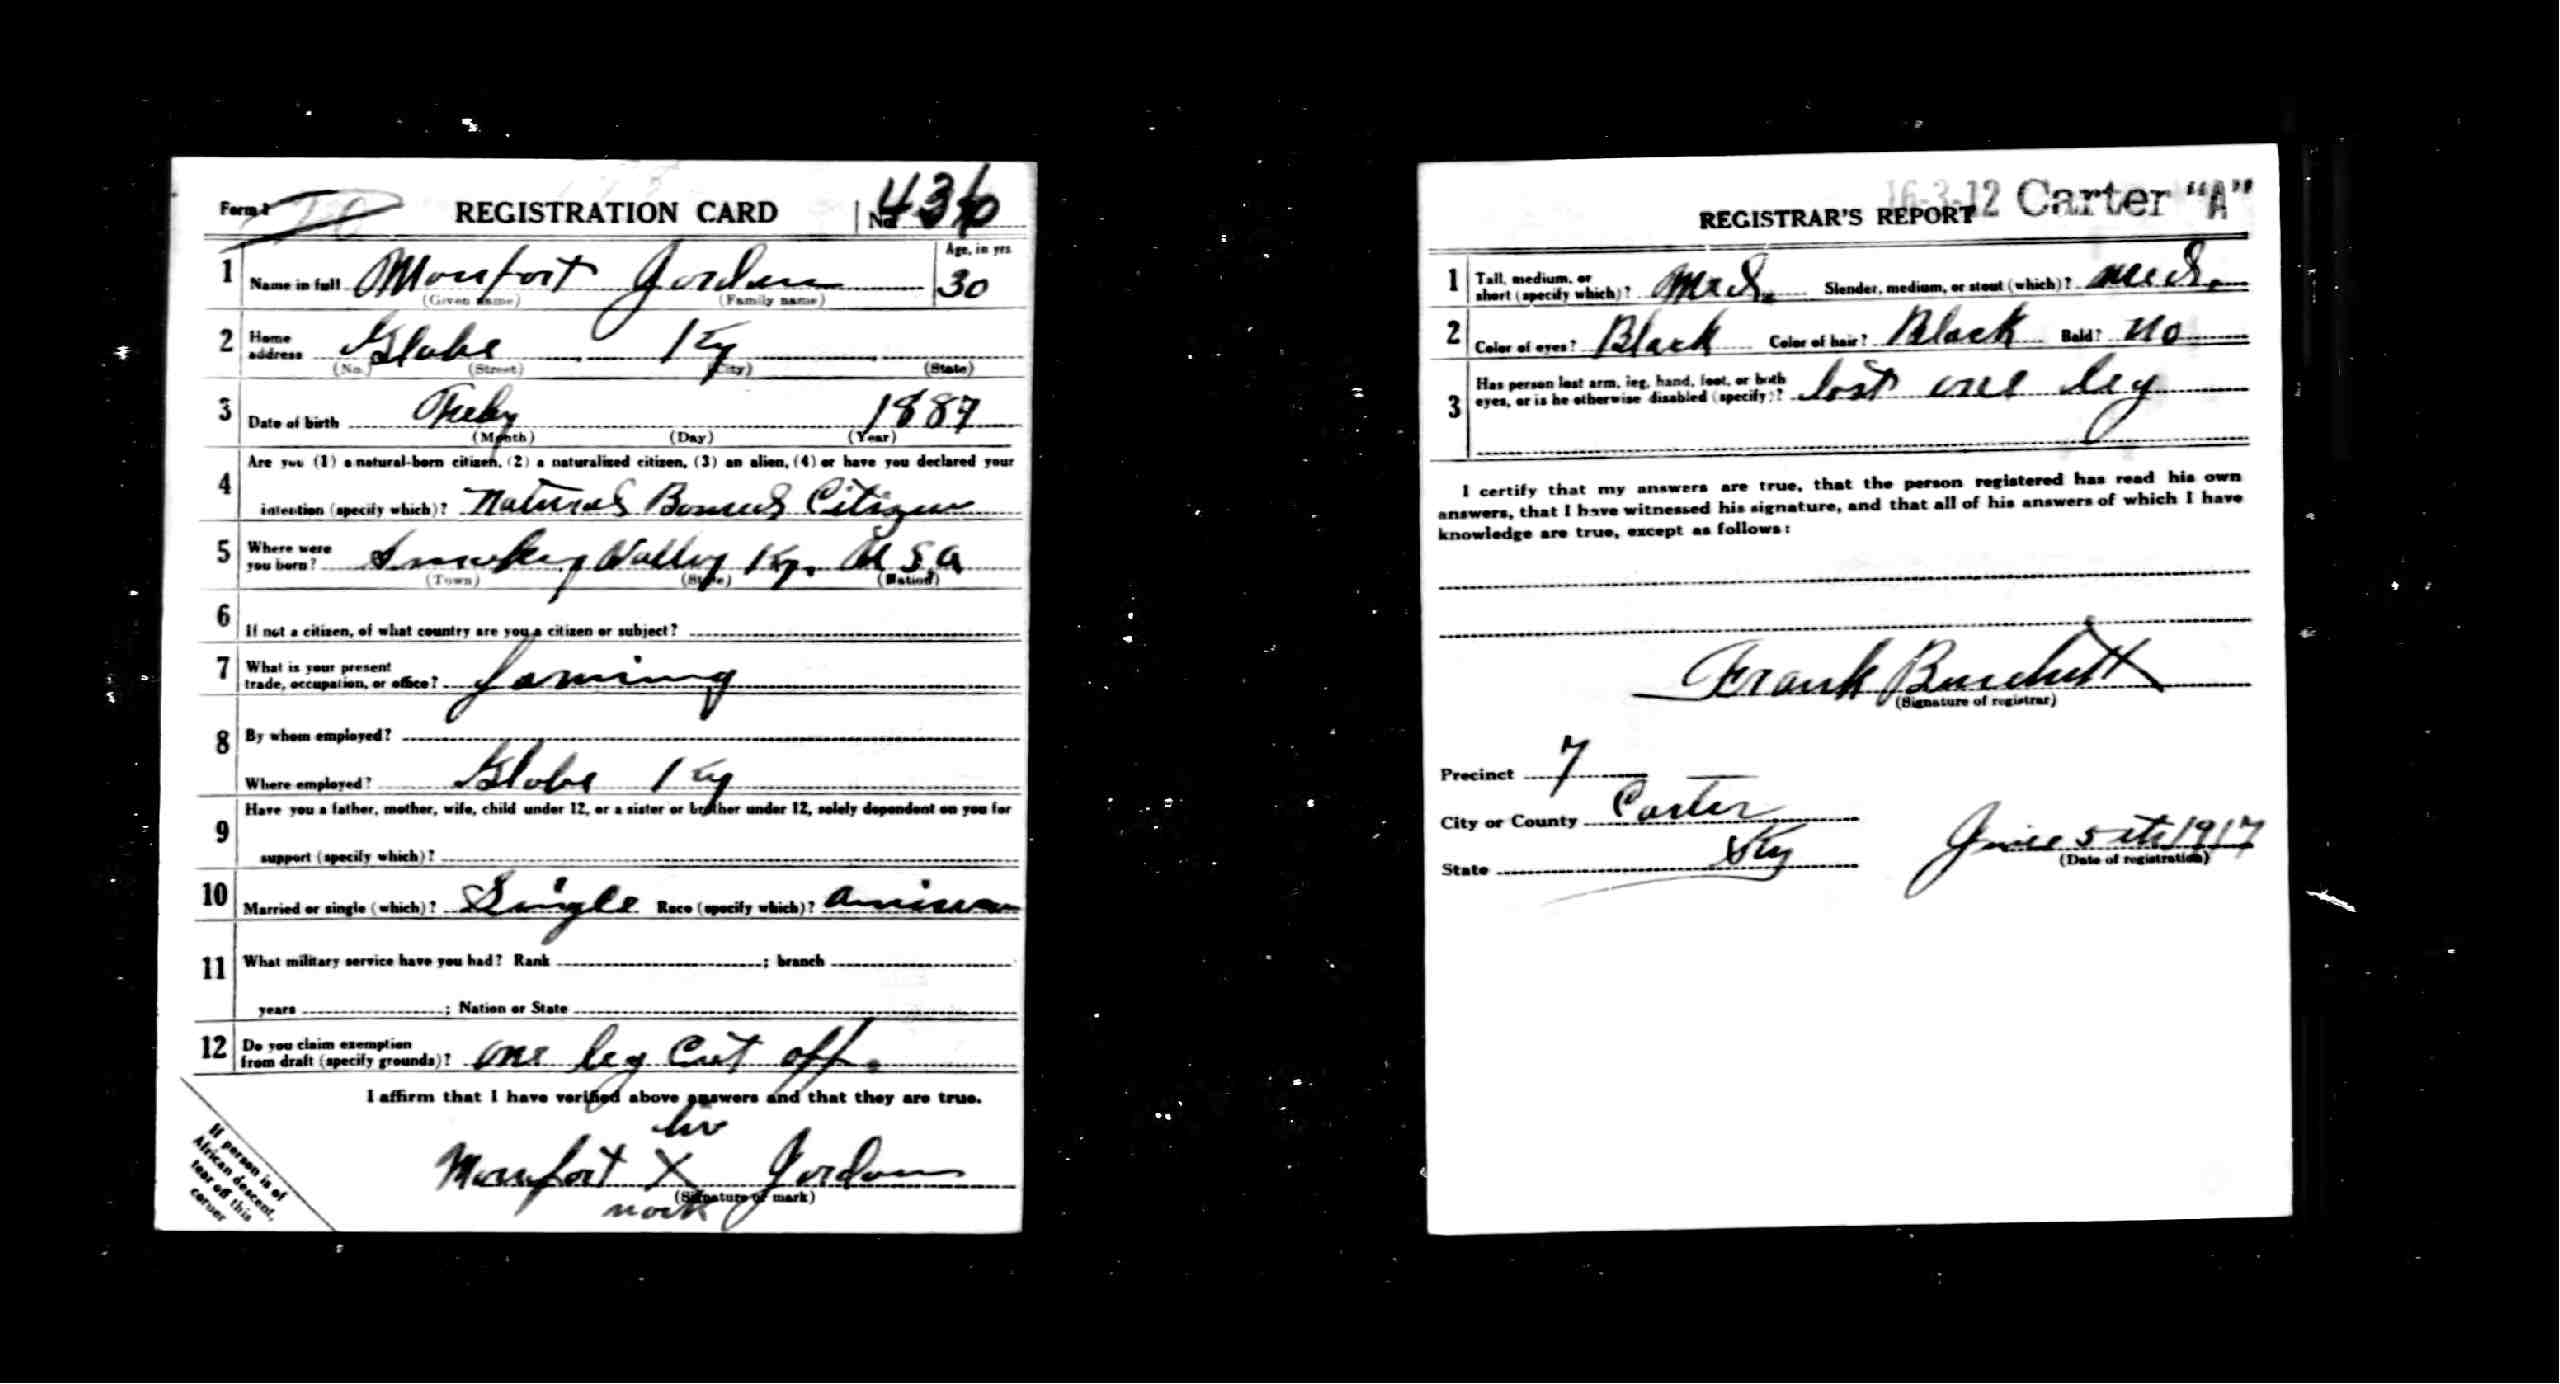 Form 1 REGISTRATION CARD No.
1 Name in full Monfort Jordan Age, in yrs 30
(Given name) (Family name)
2 Home address Globe Ky
(No.) (Street) (City) (State)
3 Date of birth Feby 1887
(Month) (Day) (Year)
4 Are you (1) a natural-born citizen, (2) a naturalized citizen, (3) an alien, (4) or have you declared your
intention (specify which)? Natural Citizen
5 Where were you born? Smokey Valley Ky. U S A
(Town) (State) (Nation)
6 If not a citizen, of what country are you a citizen or subject?
7 What is your present
trade, occupation, or office? farming
8 By whom employed?
Where employed? Globe Ky
9 Have you a father, mother, wife, child under 12, or a sister or brother under 12, solely dependent on you for
support (specify which)?
10 Married or single (which)? Single Race (specify which)?
11 What military service have you had? Rank ; branch
years ; Nation or State
12 Do you claim exemption
from draft (specify grounds)? one leg Cut off.
I affirm that I have verified above answers and that they are true.
his
Monfort X Jordan
(Signature or mark)
mark
If person is of
African descent,
tear off this
corner
16-3-12 Carter "A"
REGISTRAR'S REPORT
1 Tall, medium, or
short (specify which)? Med. Slender, medium, or stout (which)? med.
2 Color of eyes? Black Color of hair? Black Bald? No
3 Has person lost arm, leg, hand, foot, or both
eyes, or is he otherwise disabled (specify)? lost one leg
I certify that my answers are true, that the person registered has read his own
answers, that I have witnessed his signature, and that all of his answers of which I have
knowledge are true, except as follows:
Frank Burchett
(Signature of registrar)
Precinct 7
City or County Carter
State Ky June 5th 1917
(Date of registration)